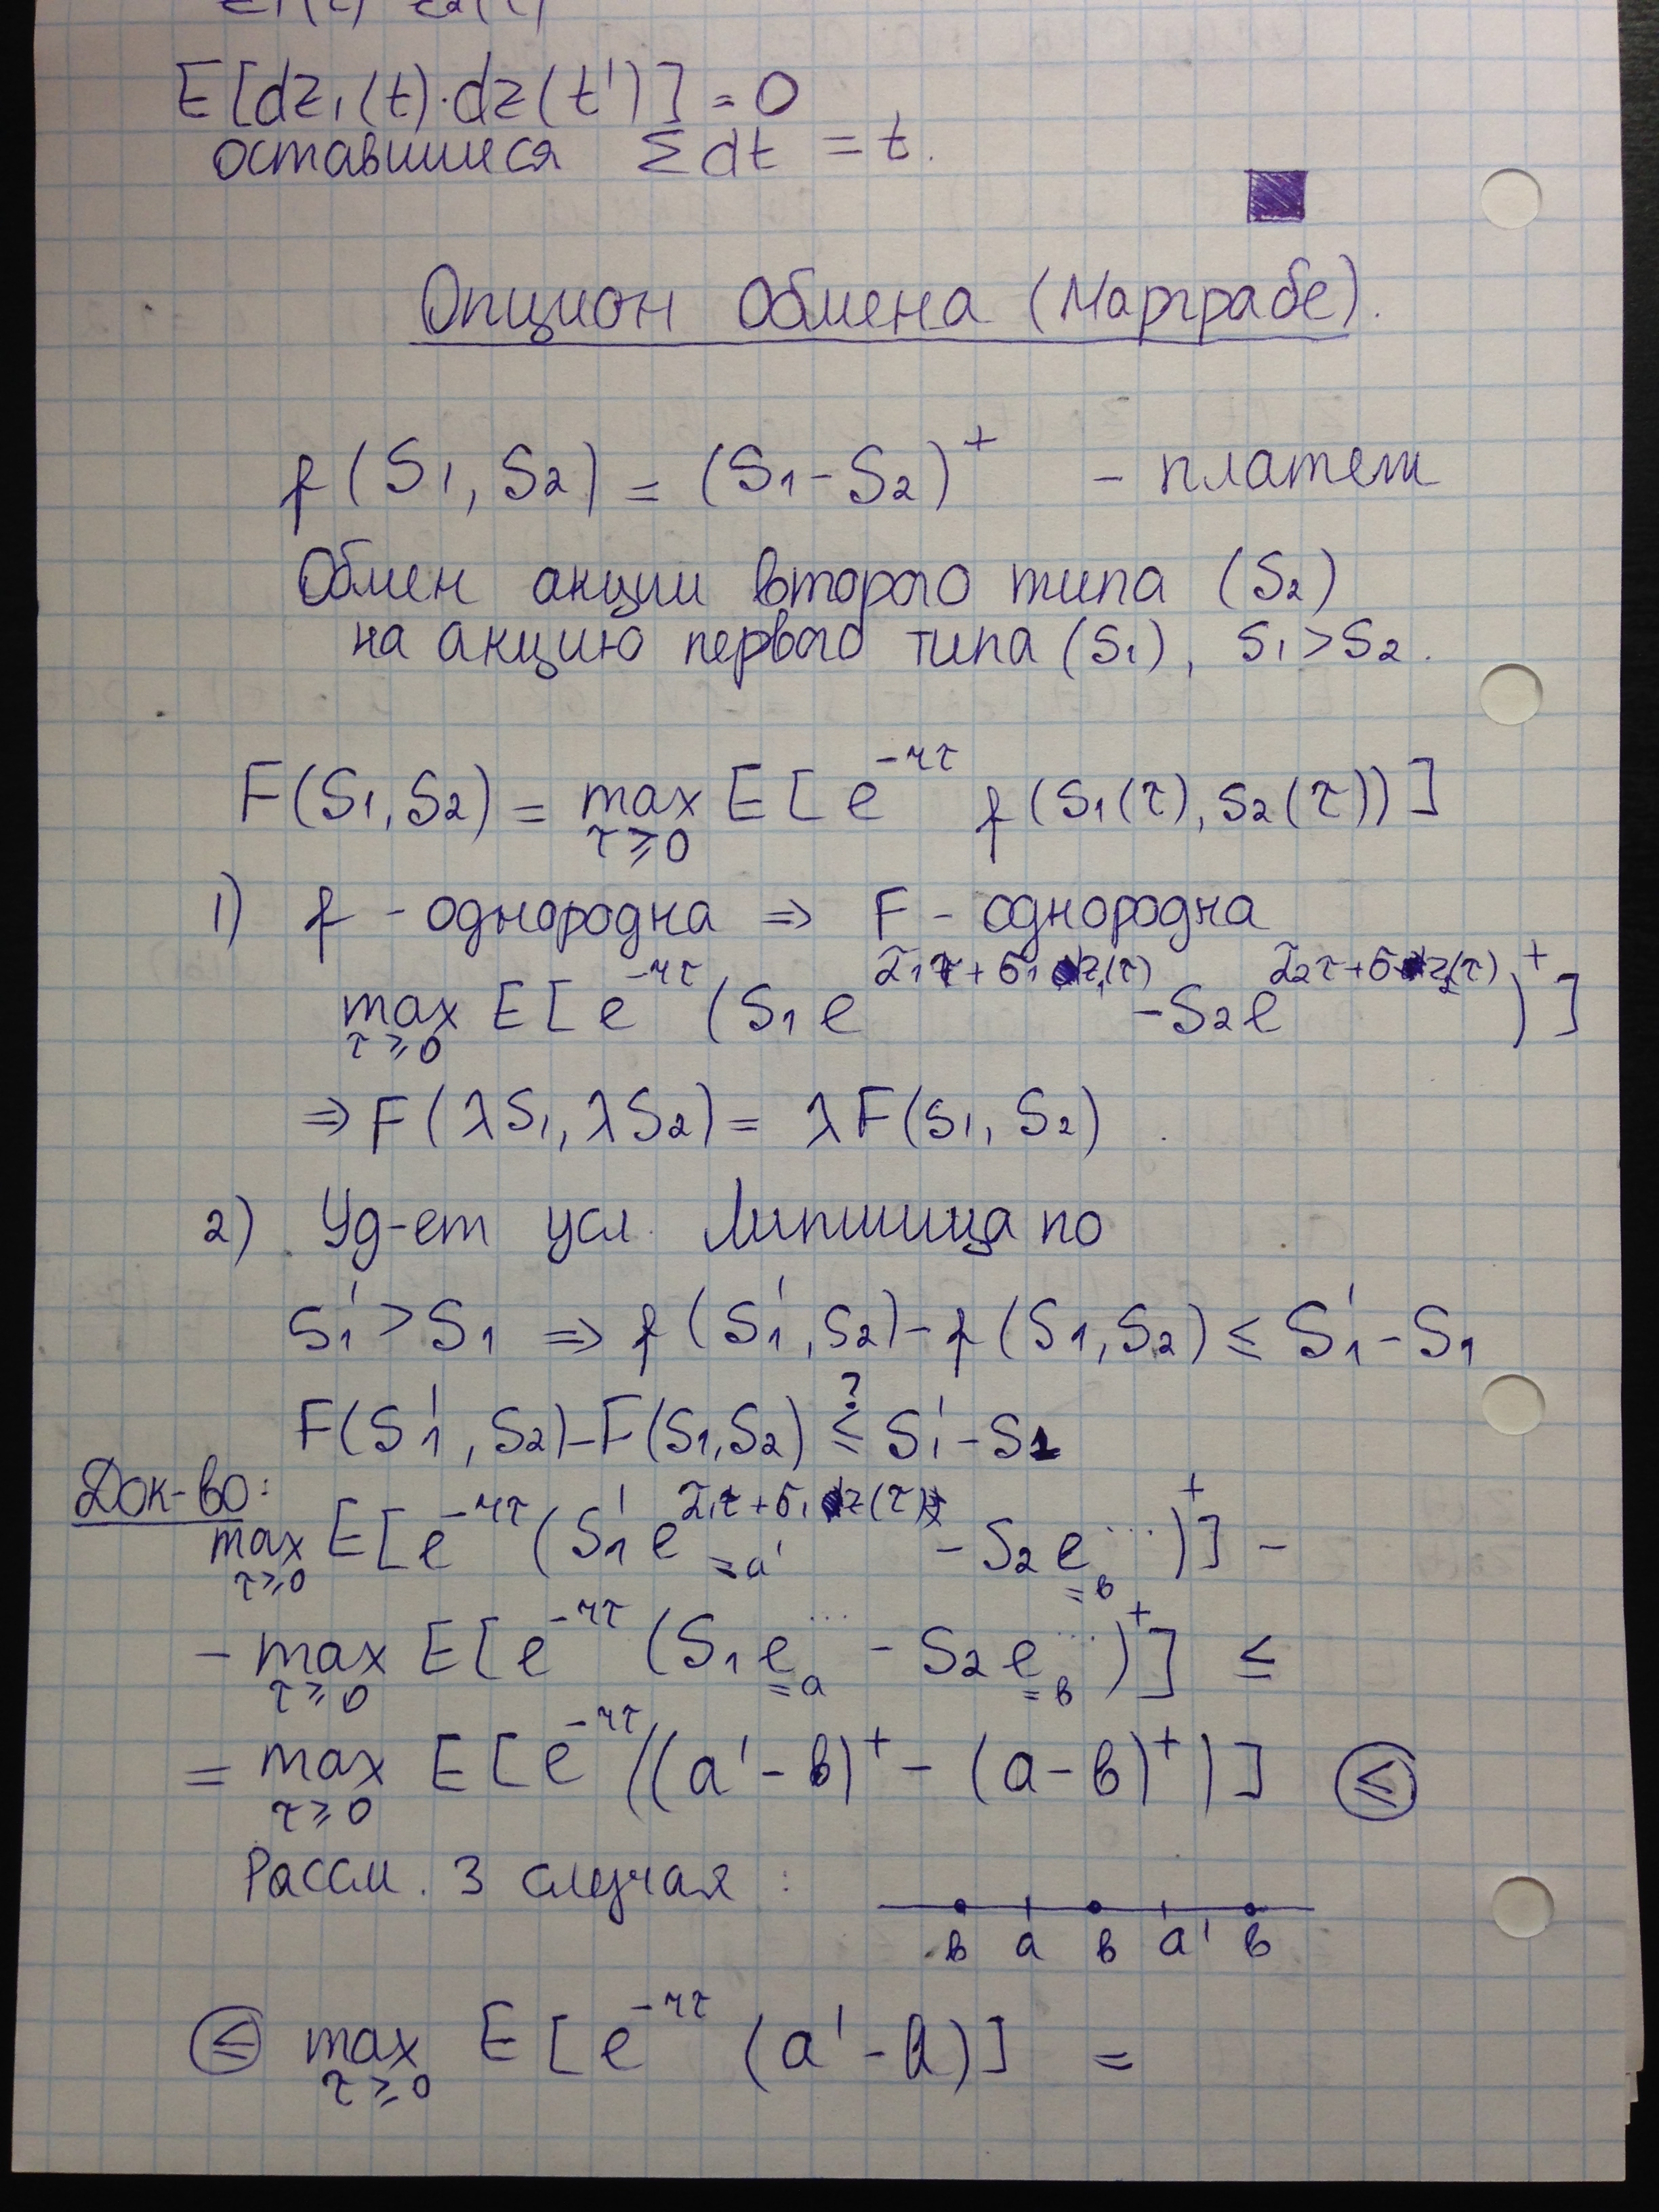 E[dz₁(t)·dz(t')] = 0
оставшиеся Σdt = t.
Опцион Обмена (Марграбе).
f(S₁, S₂) = (S₁ - S₂)⁺ - платеж
Обмен акции второго типа (S₂)
на акцию первого типа (S₁), S₁ > S₂.
F(S₁, S₂) = max E[e^{-rτ} f(S₁(τ), S₂(τ))]
τ ≥ 0
1) f - однородна ⇒ F - однородна
max E[e^{-rτ} (S₁e^{α₁τ + σ₁z₁(τ)} - S₂e^{α₂τ + σz₂(τ)})⁺]
τ ≥ 0
⇒ F(λS₁, λS₂) = λF(S₁, S₂).
2) Уд-ет усл. Липшица по
S₁' > S₁ ⇒ f(S₁', S₂) - f(S₁, S₂) ≤ S₁' - S₁
F(S₁', S₂) - F(S₁, S₂) ≤^? S₁' - S₁
Док-во:
max E[e^{-rτ} (S₁'e^{α₁τ + σ₁z(τ)} - S₂e^{...})⁺] -
τ ≥ 0 = a' = в
- max E[e^{-rτ} (S₁e^{...} - S₂e^{...})⁺] ≤
τ ≥ 0 = a = в
= max E[e^{-rτ}((a' - в)⁺ - (a - в)⁺)] ≤
τ ≥ 0
Рассм. 3 случая:
в a в a' в
≤ max E[e^{-rτ} (a' - a)] =
τ ≥ 0